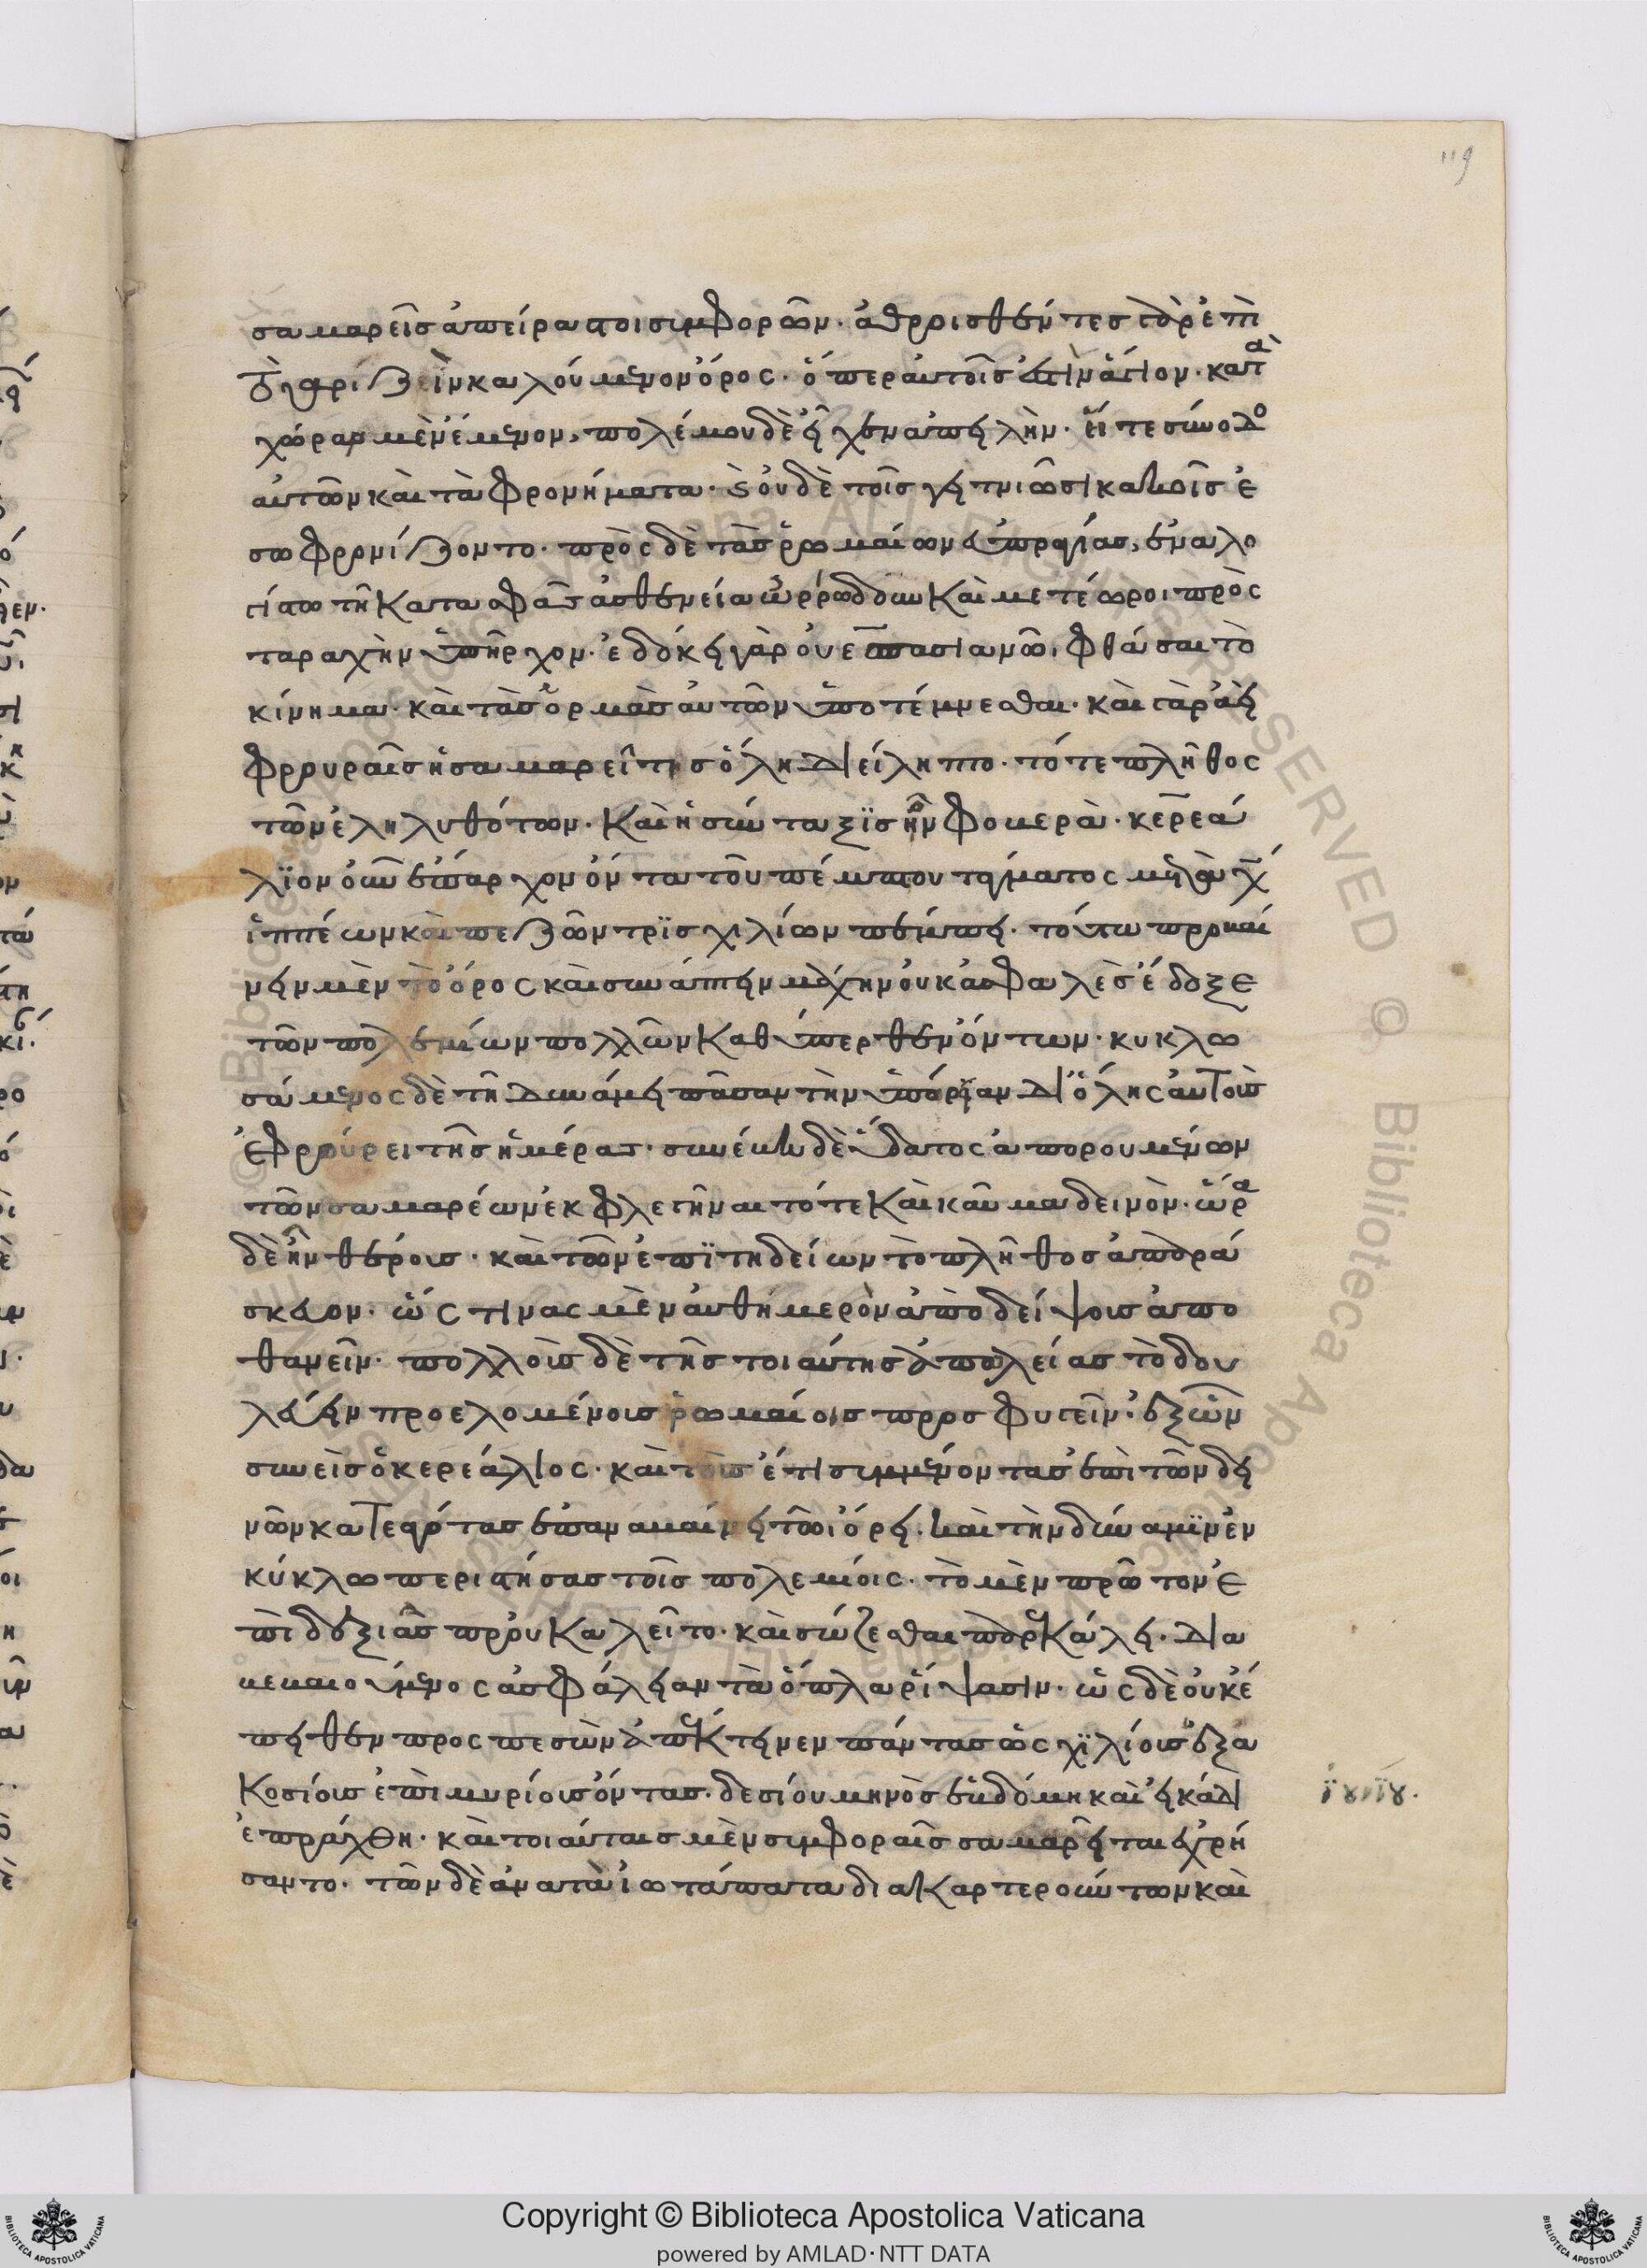 119
σαμαρεῖς ἀπείρατοι συμφορῶν· ἀθροισθέντες γὰρ ἐπὶ
τὸ γαριζεὶν καλούμενον ὄρος· ὅπερ αὐτοῖς ἐστὶν ἅγιον· κατὰ
χώραν μὲν ἔμενον, πολέμου δὲ εἶχεν ἀπειλὴν· ἥ τε σύνοδο
αὐτῶν καὶ τὰ φρονήματα· καὶ οὐδὲ τοῖς γειτνιῶσι κακοῖς ἐ
σωφρονίζοντο· πρὸς δὲ τὰς ῥωμαίων εὐπραγίας, ἐν ἀλο
γίαι τῆ κατὰ σφᾶς ἀσθενεία ὠρρώδουν καὶ μετέωροι πρὸς
ταραχὴν ὑπῆρχον· ἐδόκει γὰρ οὐεσπασιανῶι φθάσαι τὸ
κίνημα· καὶ τὰς ὁρμὰς αὐτῶν ὑποτέμνεσθαι· καὶ γὰρ ἀεὶ
φρουραῖς ἡ σαμαρεῖτις ὅλη διείληπτο· τό τε πλῆθος
τῶν ἐληλυθότων· καὶ ἡ σύνταξις ἦν φοβερὰ· κερεά
λιον οὖν ἔπαρχον ὄντα τοῦ πέμπτου τάγματος μεθ ἑξ
ἱππέων καὶ πεζῶν τρισχιλίων πέμπει· τούτω προβαί
νειν μὲν τὸ ὄρος καὶ συνάπτειν μάχην οὐκ ἀσφαλὲς ἔδοξε
τῶν πολεμίων πολλῶν καθύπερθεν ὄντων· κυκλω
σάμενος δὲ τῆ δυνάμει πᾶσαν τὴν ὑπώρειαν δι ὅλης αὐτοὺς
ἐφρούρει τῆς ἡμέρας· συνέβη δὲ ὕδατος ἀπορουμένων
τῶν σαμαρέων ἐκφλεγῆναι τότε καὶ καῦμα δεινὸν· ὥρα
δὲ ἦν θέρους· καὶ τῶν ἐπιτηδείων τὸ πλῆθος ἀπαρά
σκευον· ὡς τινας μὲν αὐθημερὸν ἀπὸ δείψους ἀπο
θανεῖν· πολλοὺς δὲ τῆς τοιαύτης ἀπωλείας τὸ δου
λεύειν προελομένους ῥωμαίοις προσφυγεῖν· ἐξ ὧν
συνεὶς ὁ κερεάλιος· καὶ τοὺς ἔτι συμμένοντας ἐπὶ τῶν δει
νῶν κατεαγότας ἐπαναβαίνει τῶι ὄρει· καὶ τὴν δύναμιν ἐν
κύκλω περιστήσας τοῖς πολεμίοις· τὸ μὲν πρῶτον ἐ
πὶ δεξιᾶς προὐκαλεῖτο· καὶ σώζεσθαι παρεκάλει· δια
βεβαιούμενος ἀσφάλειαν τὰ ὅπλα ῥίψασιν· ὡς δὲ οὐκ ἔ
πειθεν προσπεσὼν ἀπέκτεινεν πάντας ὡς χιλίους ἑξα
κοσίους ἐπὶ μυρίους ὄντας· δεσίου μηνὸς ἑβδόμη καὶ εἰκάδι
ἰουνίου.
ἐπράχθη· καὶ τοιαύταις μὲν συμφοραῖς σαμαρεῖται ἐχρή
σαντο· τῶν δὲ ἀνα τὰ ἰωτάπατα διακαρτερούντων καὶ